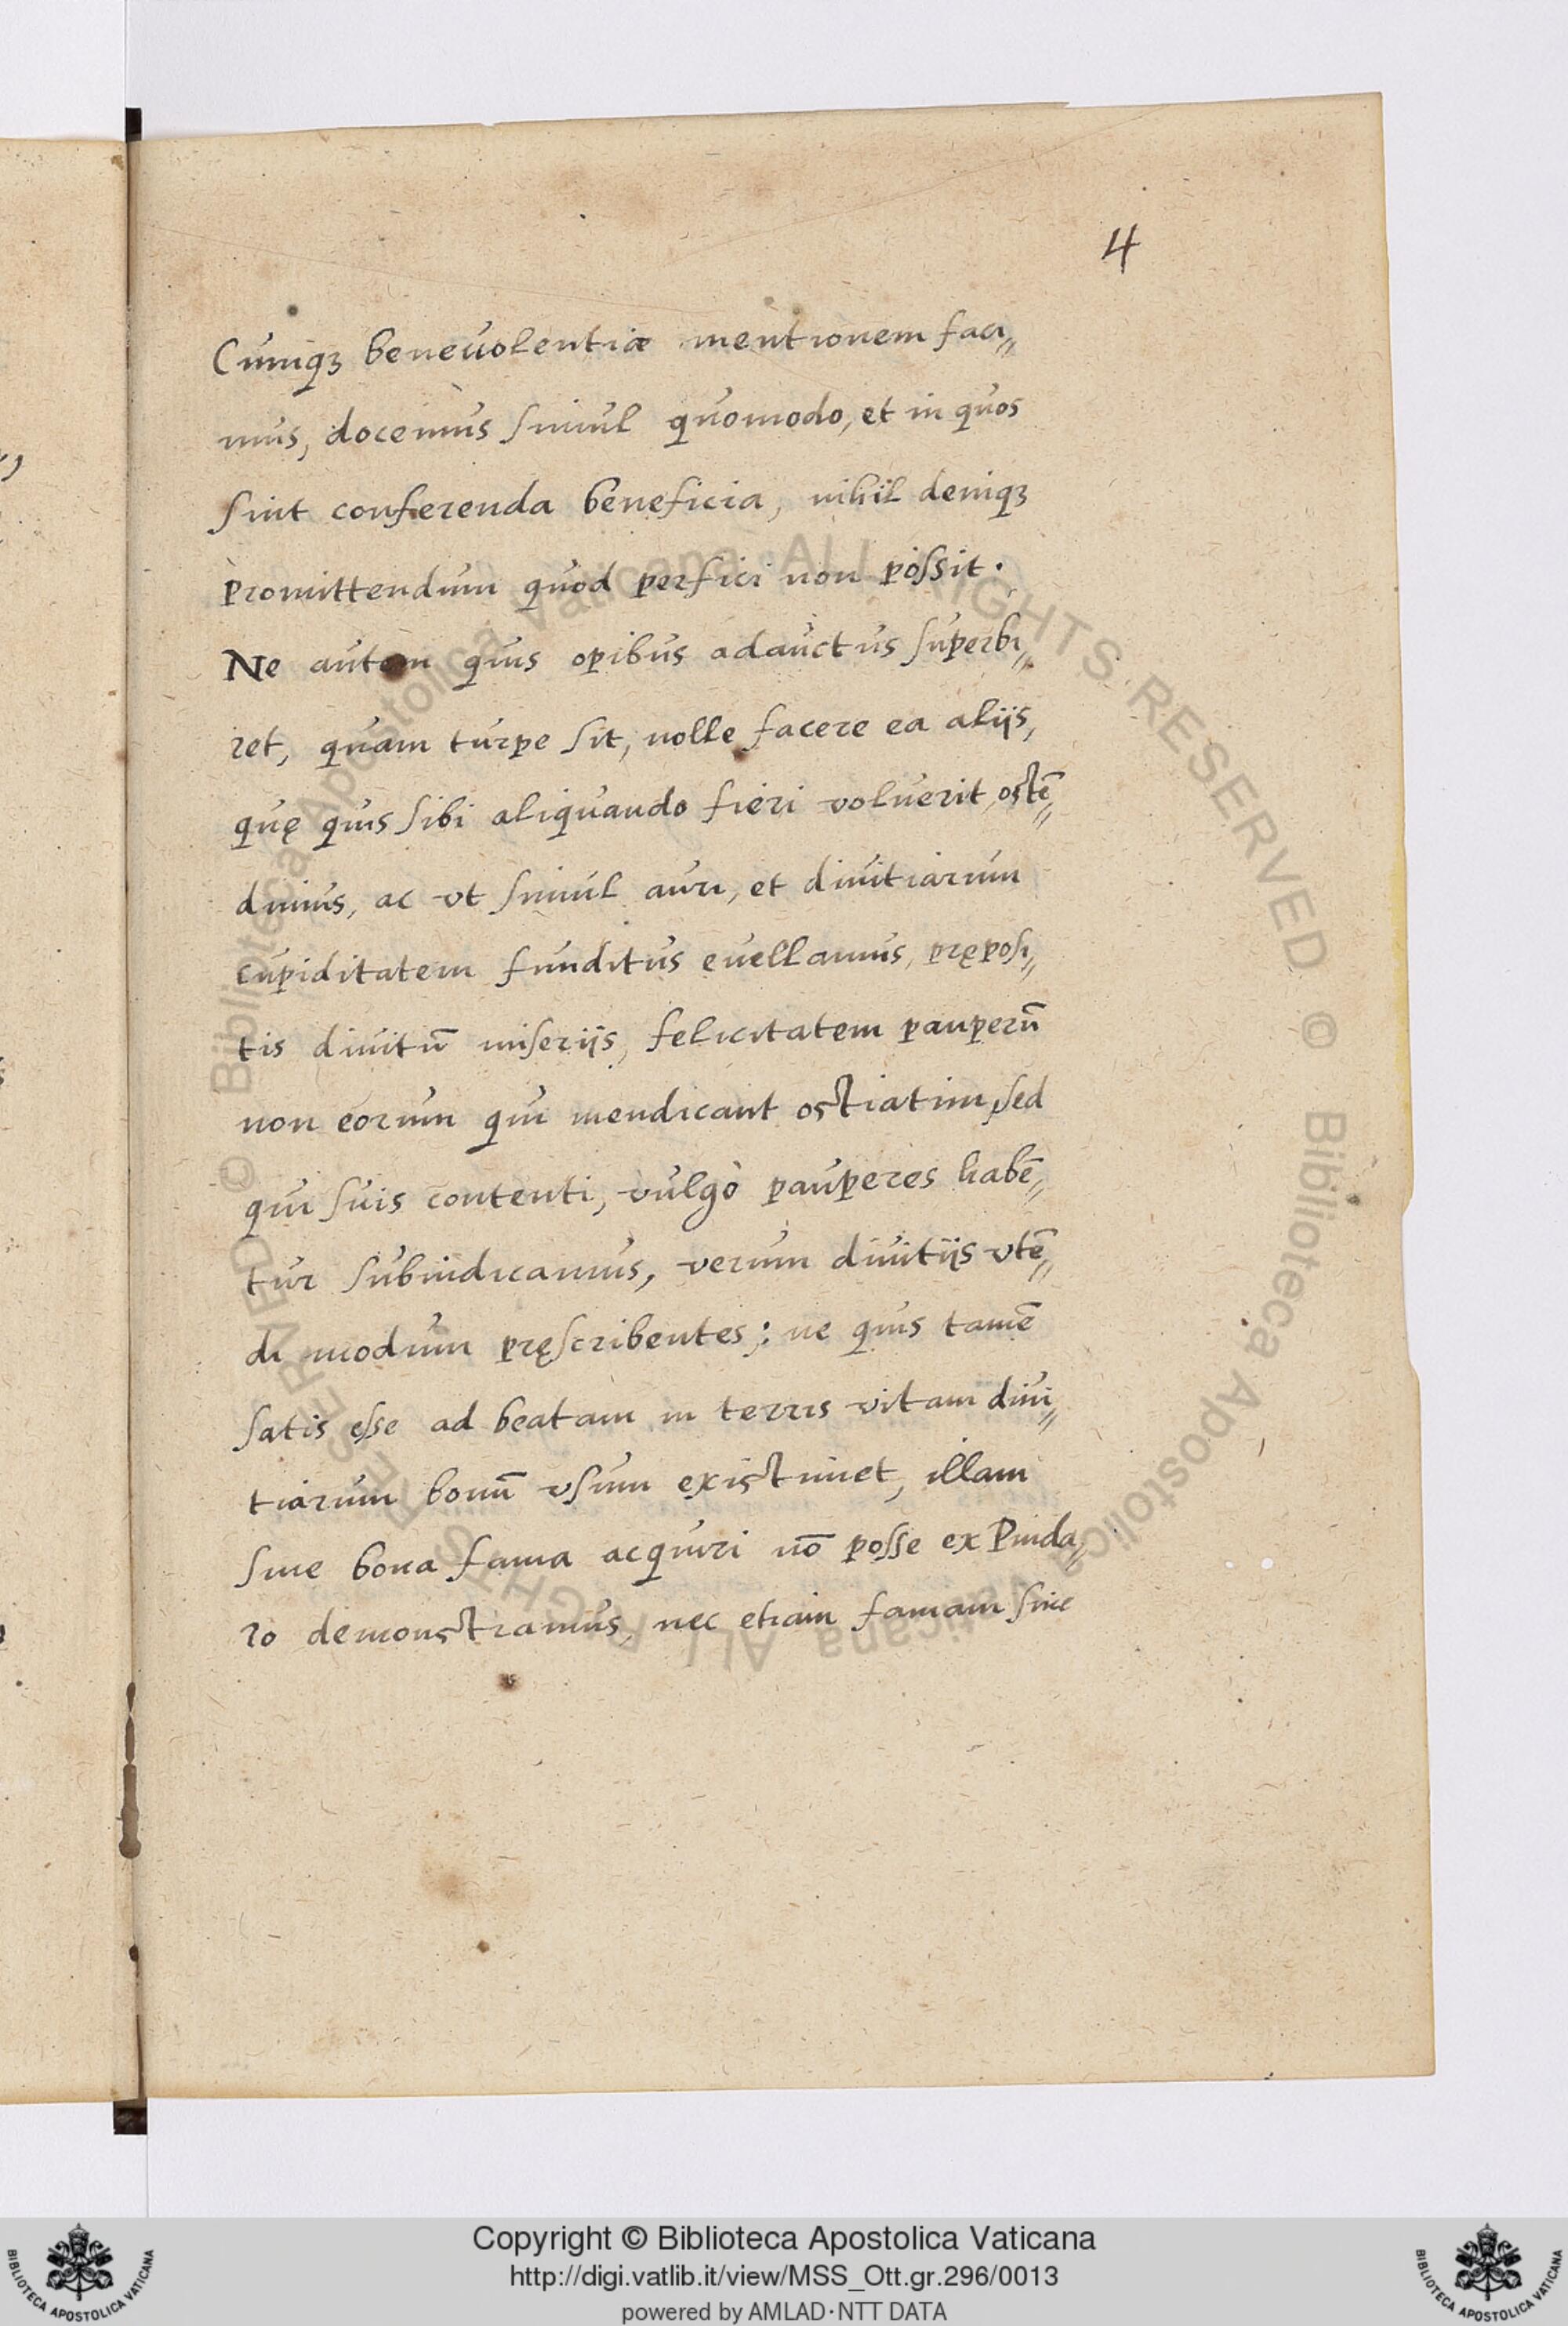 4
Cumqꝫ beneuolentiæ mentionem faci〃
mus, docemus simul quomodo, et in quos
sint conferenda beneficia, nihil deniqꝫ
promittendum quod perfici non possit.
Ne autem quis opibus adauctus superbi〃
ret, quam turpe sit, nolle facere ea alijs,
quę quis sibi aliquando fieri voluerit, ostē〃
dimus, ac vt simul auri, et diuitiarum
cupiditatem funditus euellamus, pręposi〃
tis diuitū miserijs, felicitatem pauperū
non eorum qui mendicant ostiatim, sed
qui suis contenti, vulgò pauperes habē〃
tur subindicamus, verum diuitijs vtē〃
di modum pręscribentes; ne quis tamē
satis esse ad beatam in terris vitam diui〃
tiarum bonū vsum existimet, illam
sine bona fama acquiri nō posse ex Pinda〃
ro demonstramus, nec etiam famam sine
© Biblioteca Apostolica Vaticana ALL RIGHTS RESERVED
© Biblioteca Apostolica Vaticana ALL RIGHTS RESERVED
Copyright © Biblioteca Apostolica Vaticana
http://digi.vatlib.it/view/MSS_Ott.gr.296/0013
powered by AMLAD·NTT DATA
BIBLIOTECA APOSTOLICA VATICANA
BIBLIOTECA APOSTOLICA VATICANA